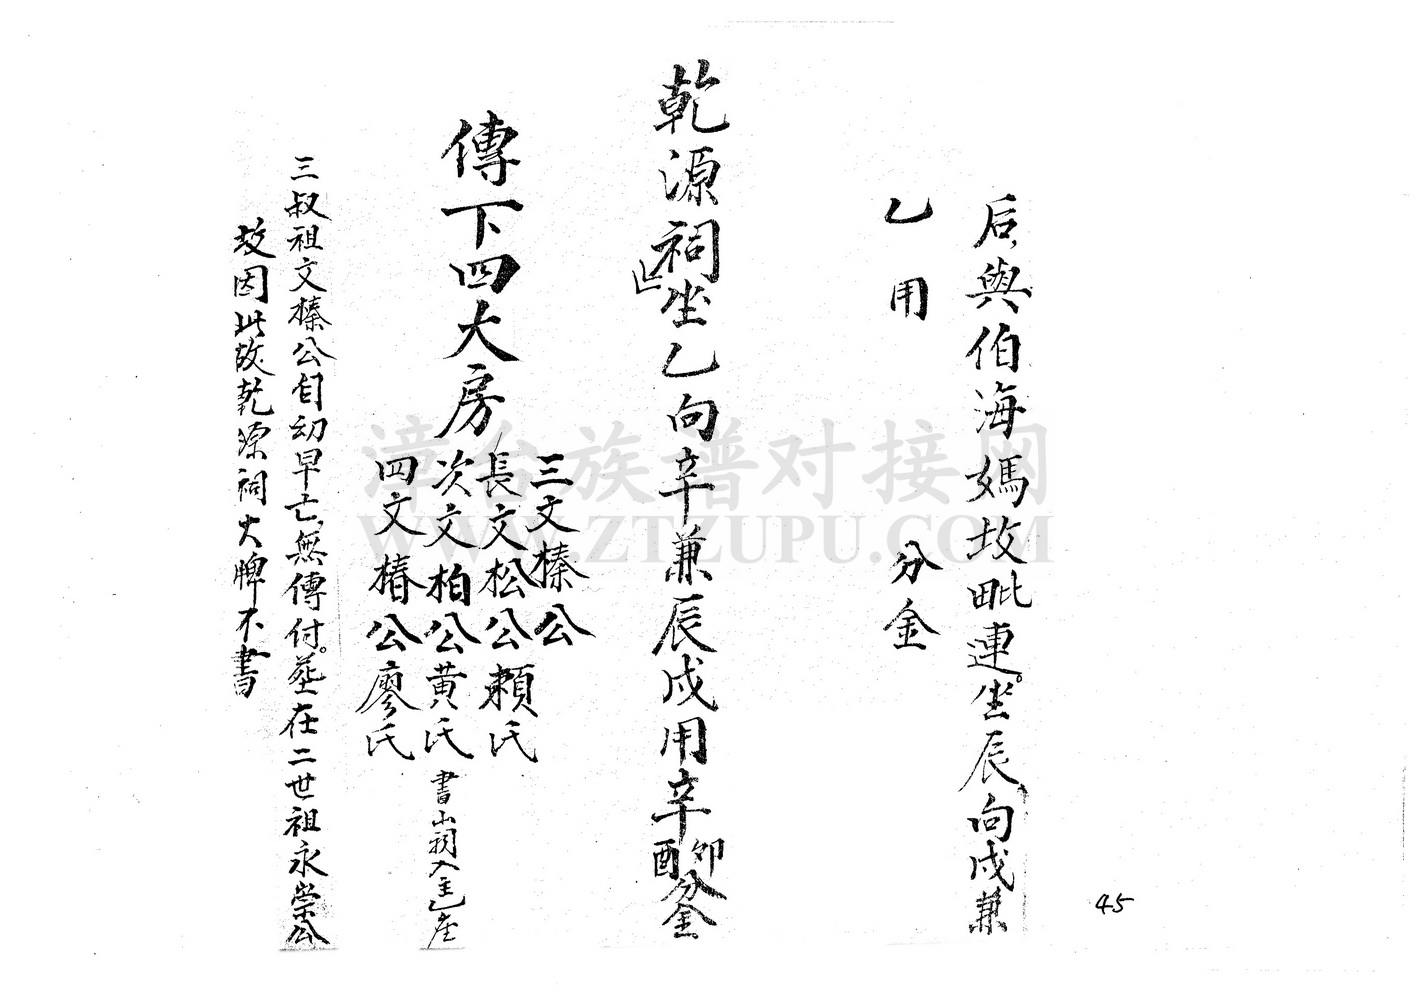 后與伯海媽坟毗連。坐辰向戌兼
乙用 分金
乾源祠坐乙向辛兼辰戌用辛卯酉分金
傳下四大房
三文榛公
長文松公賴氏
次文柏公黃氏 書山祠入主一座
四文椿公廖氏
三叔祖文榛公自幼早亡,無傳付。葬在二世祖永崇公
坟因此故乾源祠大牌不書
45
漳台族谱对接网
WWW.ZTZUPU.COM